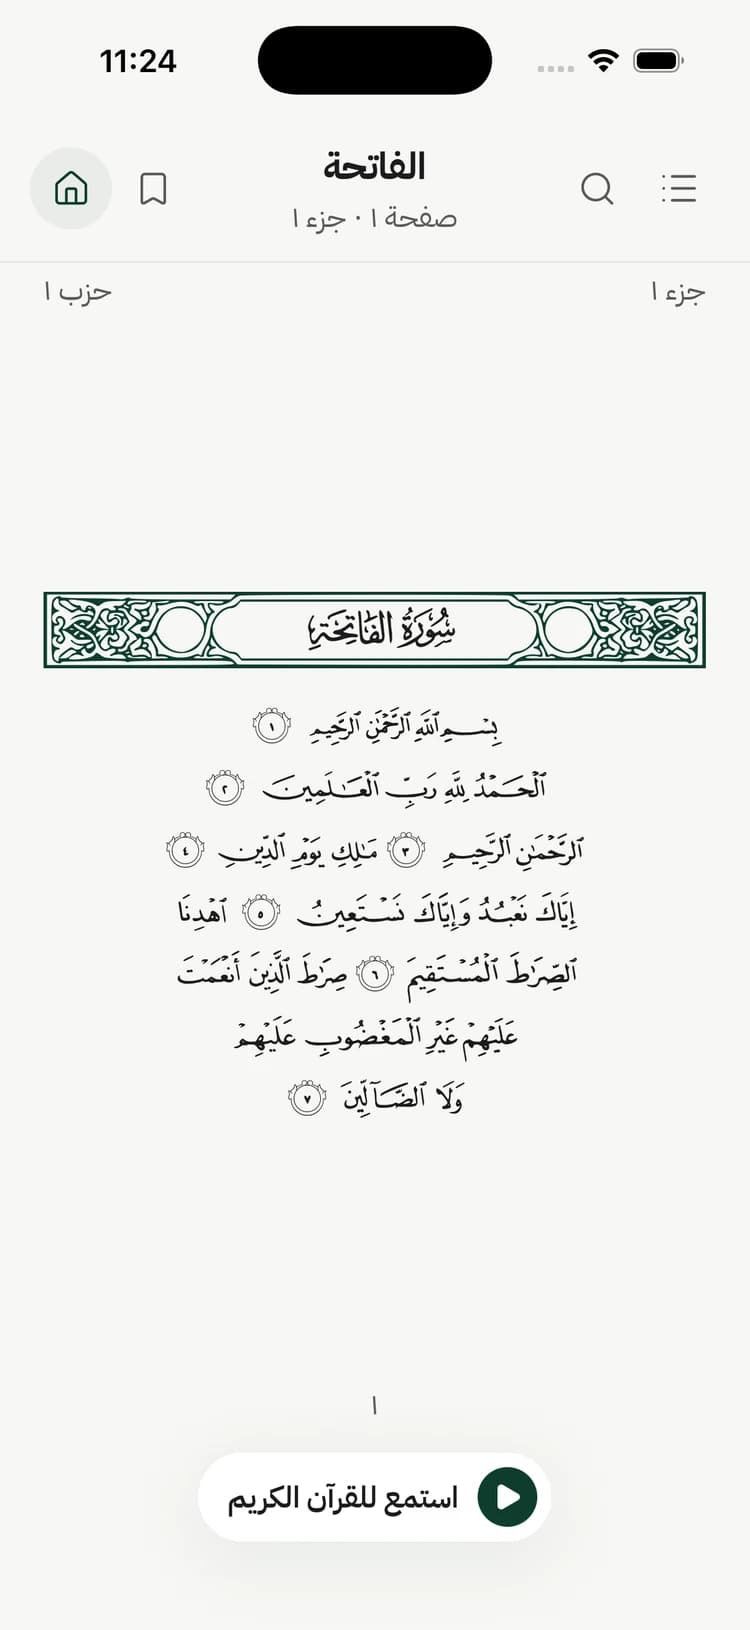 11:24
الفاتحة
صفحة ١ · جزء ١
جزء ١
حزب ١
سُورَةُ الفَاتِحَةِ
بِسْمِ ٱللَّهِ ٱلرَّحْمَٰنِ ٱلرَّحِيمِ ١
ٱلْحَمْدُ لِلَّهِ رَبِّ ٱلْعَٰلَمِينَ ٢
ٱلرَّحْمَٰنِ ٱلرَّحِيمِ ٣ مَٰلِكِ يَوْمِ ٱلدِّينِ ٤
إِيَّاكَ نَعْبُدُ وَإِيَّاكَ نَسْتَعِينُ ٥ ٱهْدِنَا
ٱلصِّرَٰطَ ٱلْمُسْتَقِيمَ ٦ صِرَٰطَ ٱلَّذِينَ أَنْعَمْتَ
عَلَيْهِمْ غَيْرِ ٱلْمَغْضُوبِ عَلَيْهِمْ
وَلَا ٱلضَّآلِّينَ ٧
١
استمع للقرآن الكريم